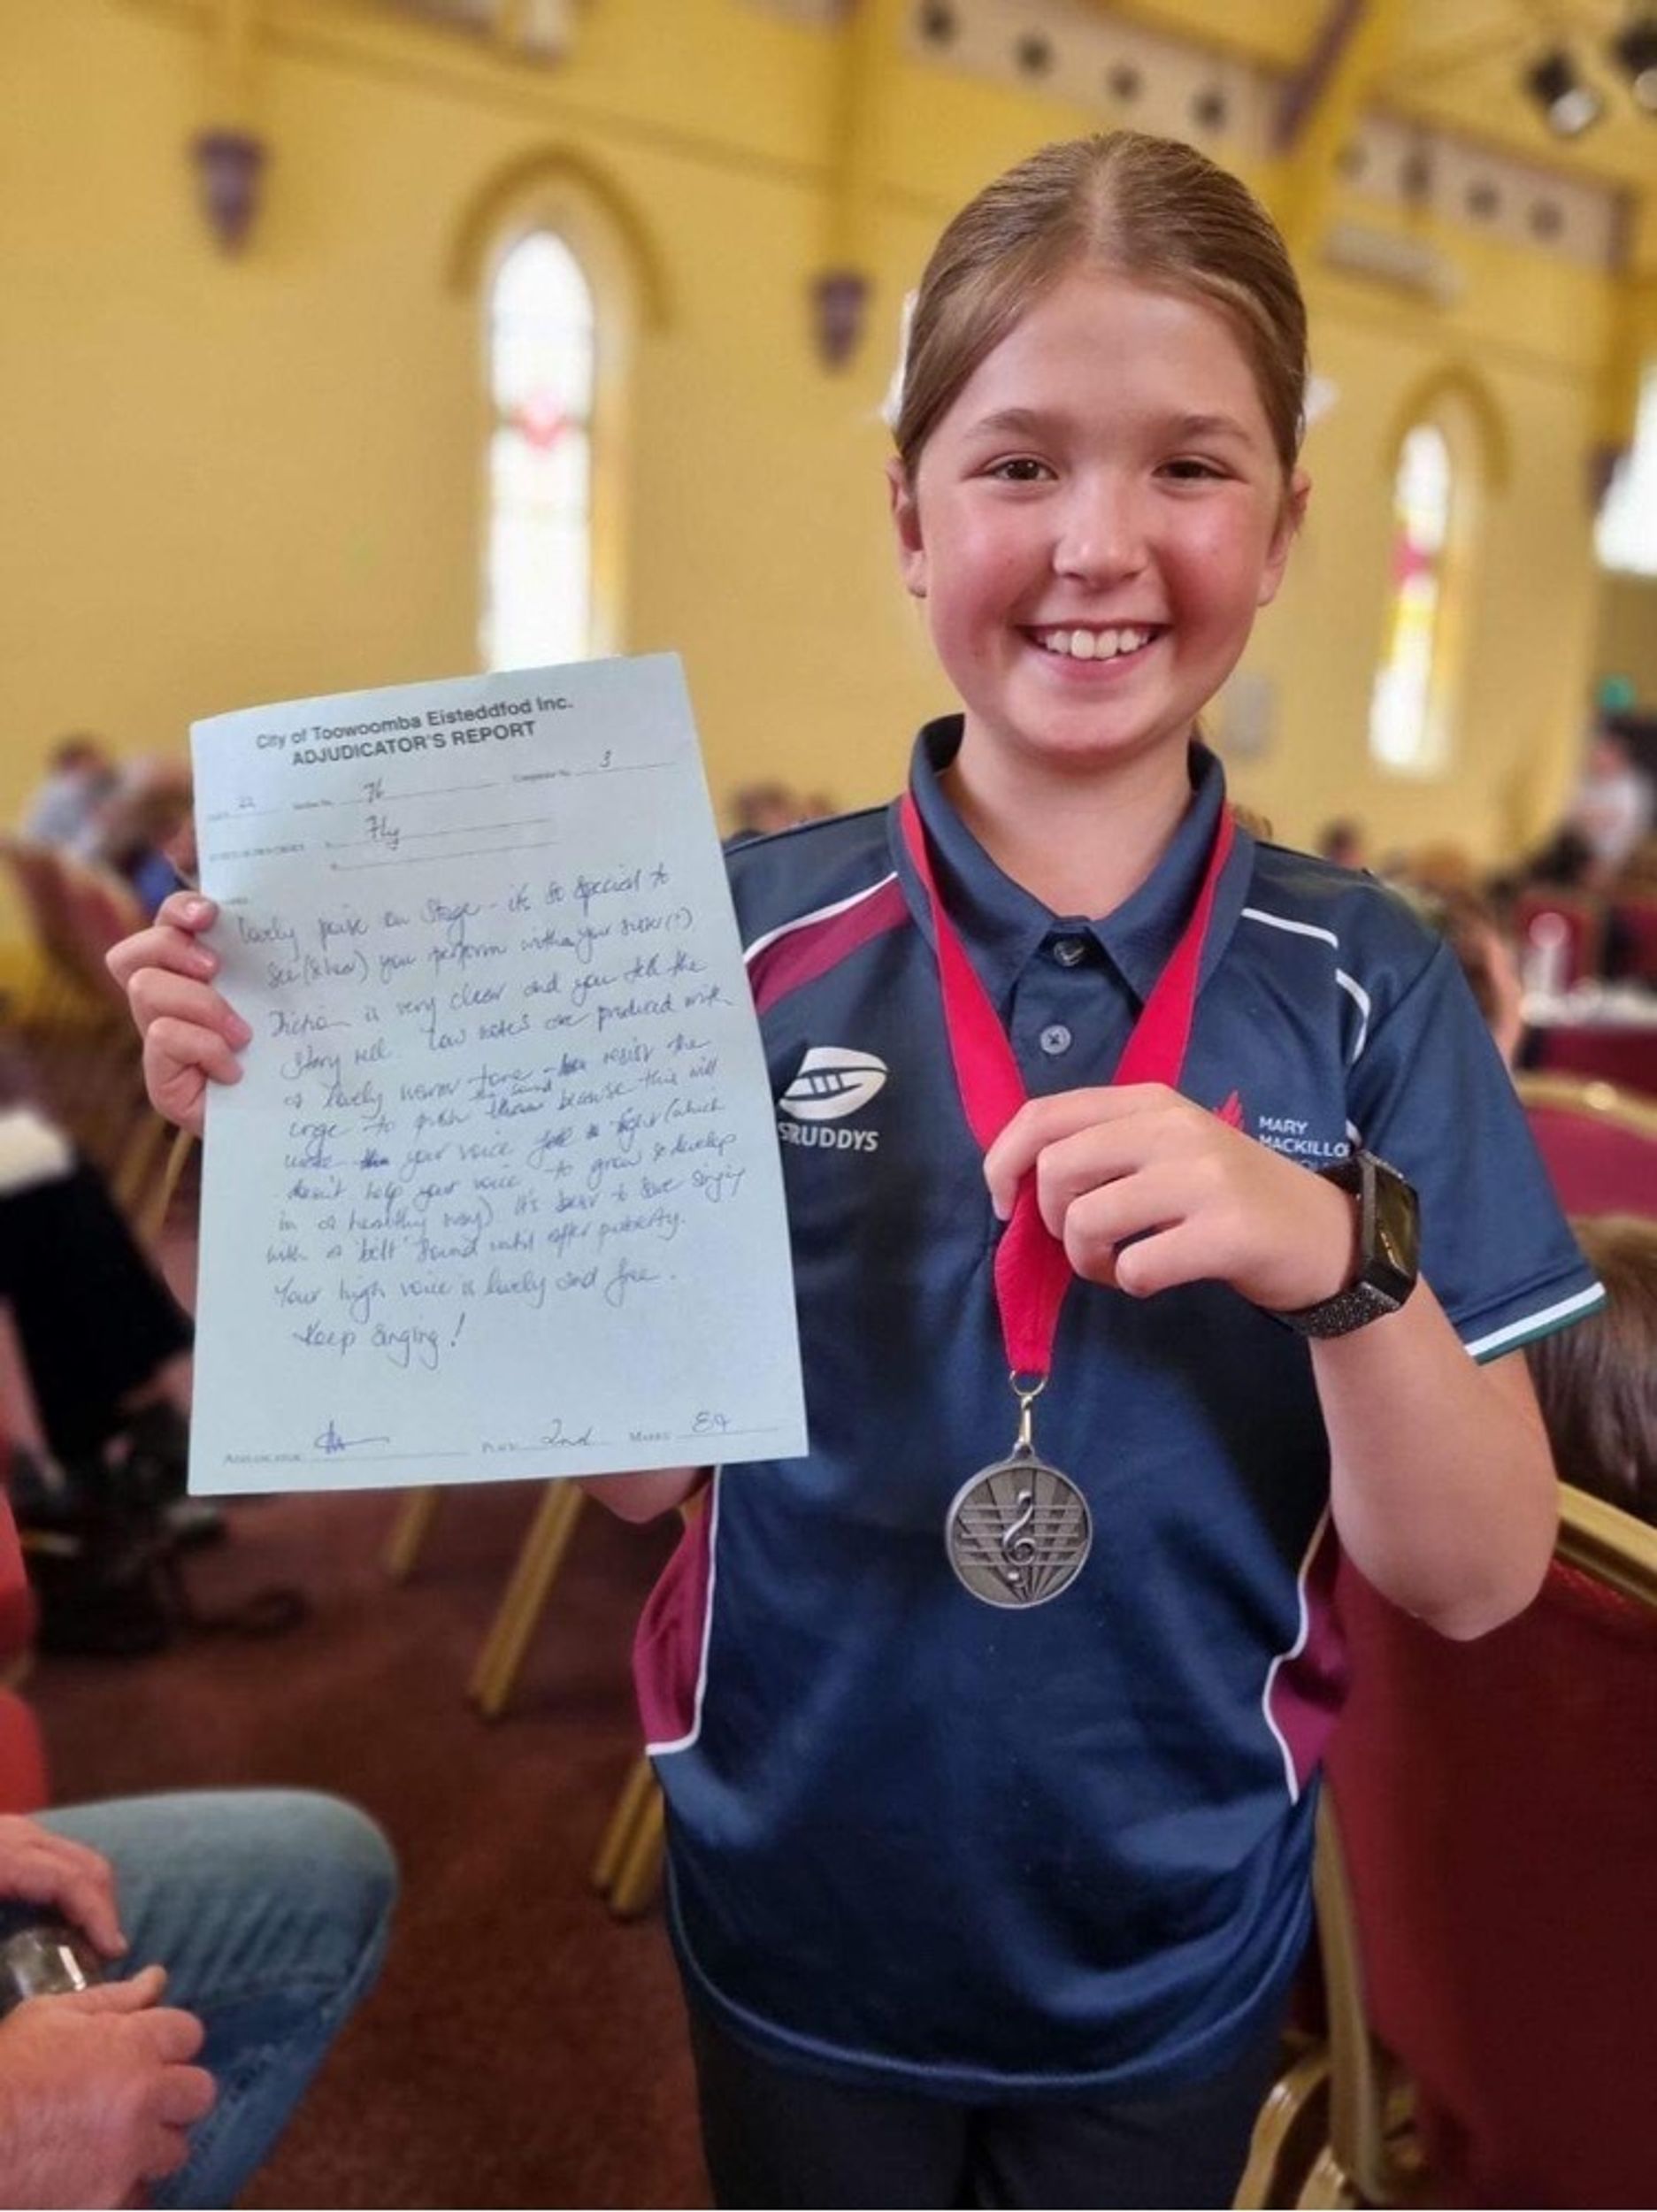 City of Toowoomba Eisteddfod Inc.
ADJUDICATOR'S REPORT
22 Section No. 76 Competitor No. 3
Fly
Lovely poise on stage - it's so special to
see (& hear) you perform with your sister (?)
Diction is very clear and you tell the
story well. Low notes are produced with
a lovely warm tone - resist the
urge to push the sound because this will
make your voice tight (which
doesn't help your voice to grow & develop
in a healthy way) It's best to save singing
with a 'belt' sound until after puberty.
Your high voice is lovely and free.
Keep singing!
ADJUDICATOR PLACE 2nd MARKS 89
STRUDDYS
MARY
MACKILLO